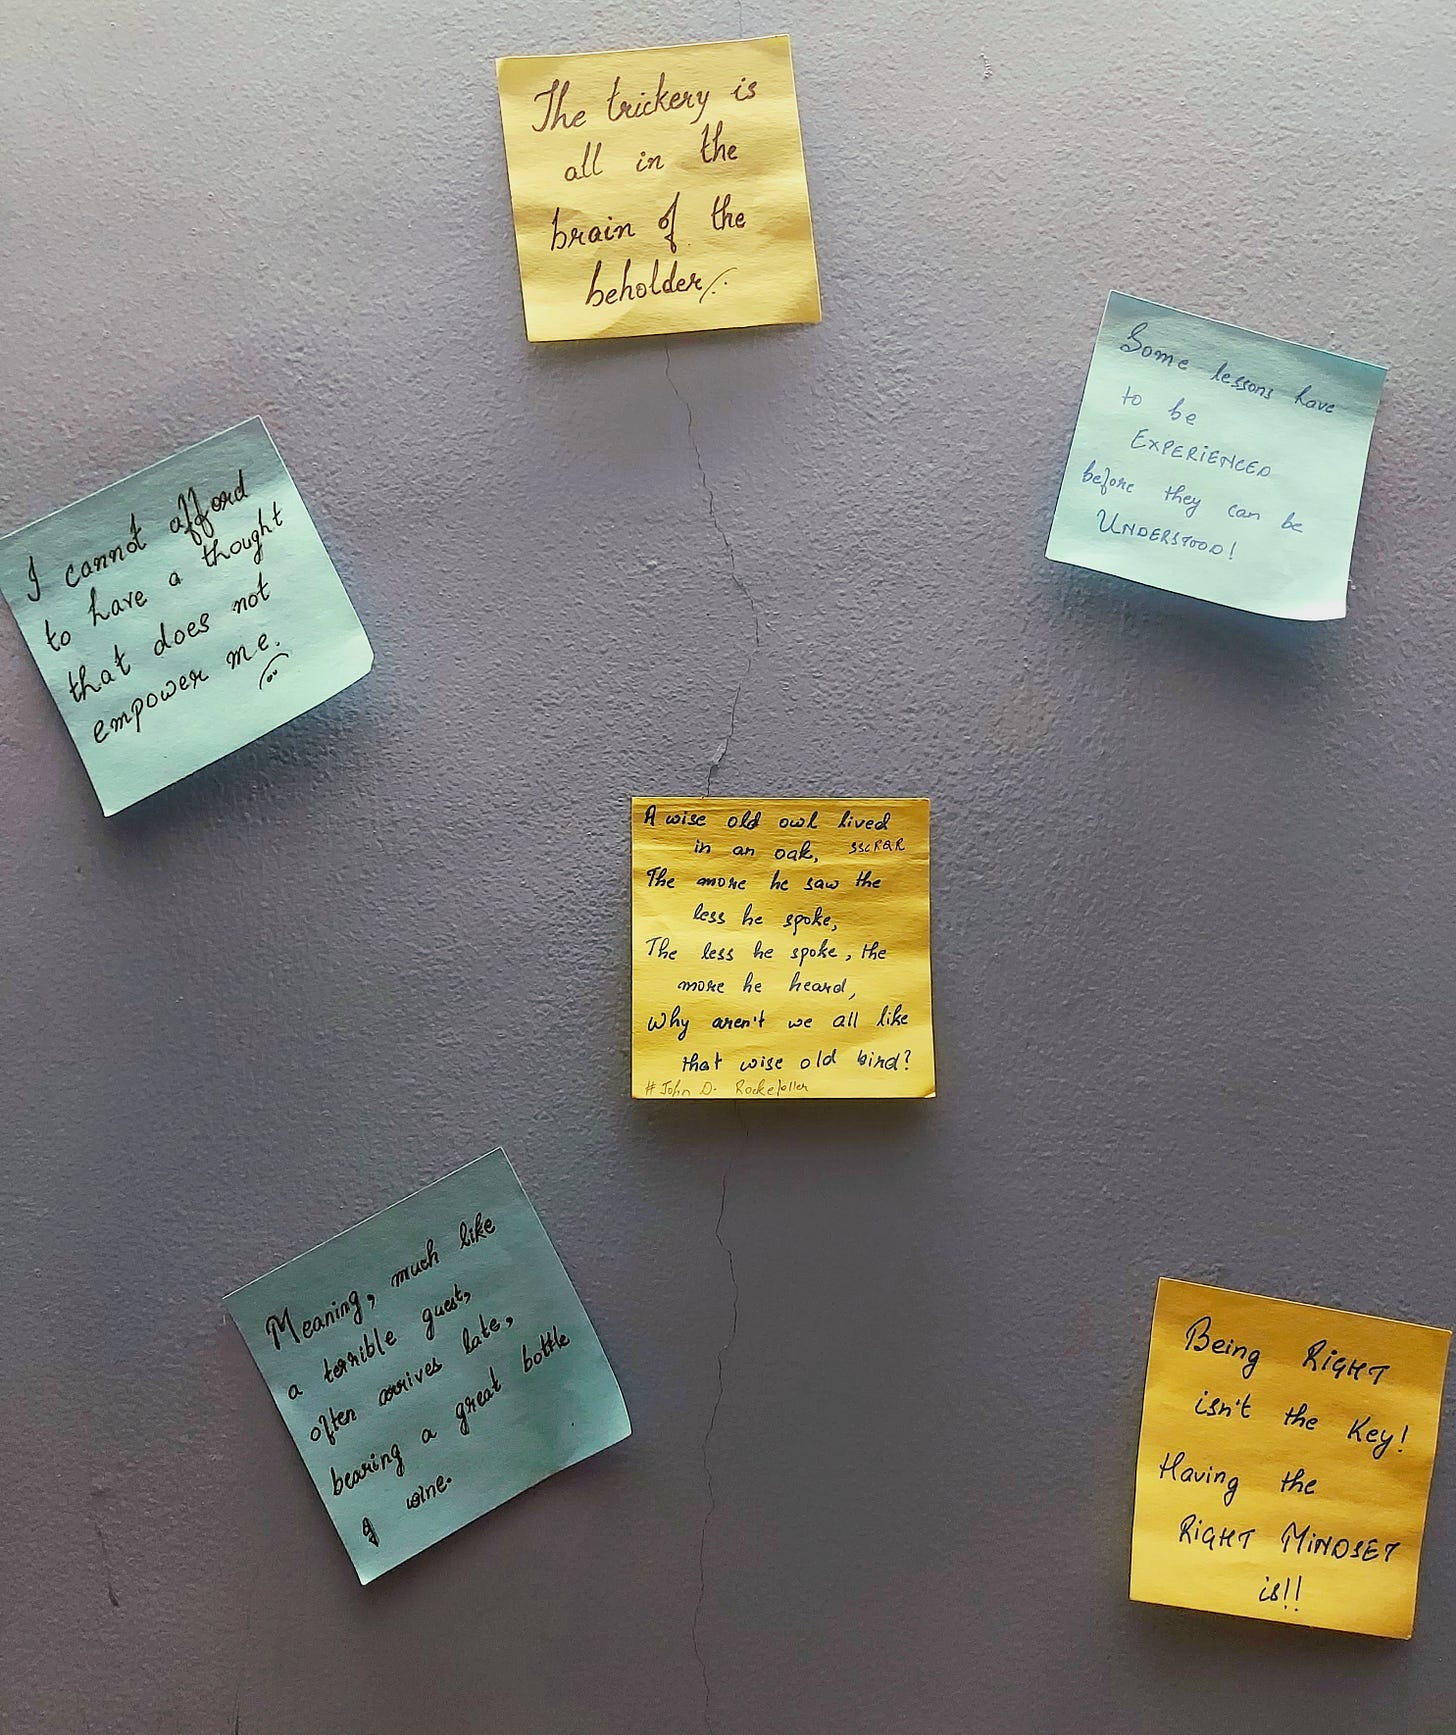 The trickery is
all in the
brain of the
beholder
Some lessons have
to be
EXPERIENCED
before they can be
UNDERSTOOD!
I cannot afford
to have a thought
that does not
empower me.
A wise old owl lived
in an oak,
The more he saw the
less he spoke,
The less he spoke, the
more he heard,
Why aren't we all like
that wise old bird?
#John D. Rockefeller
Meaning, much like
a terrible guest,
often arrives late,
bearing a great bottle
of wine.
Being RIGHT
isn't the Key!
Having the
RIGHT MINDSET
is!!